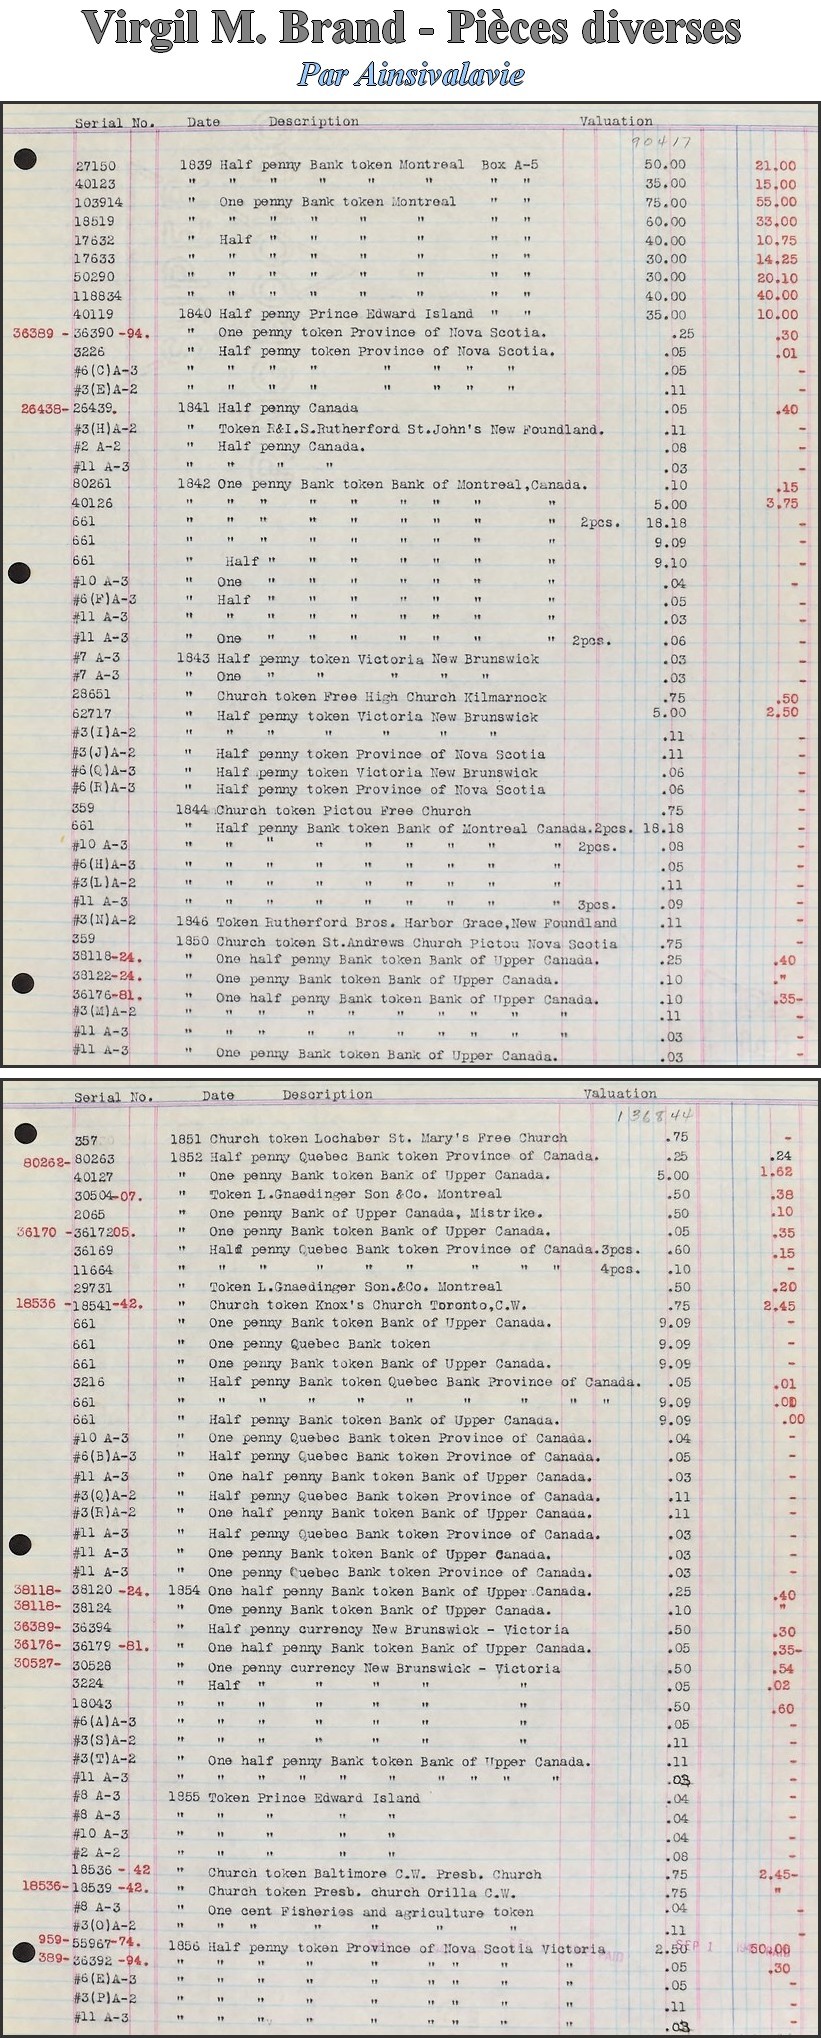 Virgil M. Brand - Pièces diverses
Par Ainsivalavie
Serial No. Date Description Valuation
90417
27150 1839 Half penny Bank token Montreal Box A-5 50.00 21.00
40123 " " " " " " " " 35.00 15.00
103914 " One penny Bank token Montreal " " 75.00 55.00
18519 " " " " " " " " 60.00 33.00
17632 " Half " " " " " " 40.00 10.75
17633 " " " " " " " " 30.00 14.25
50290 " " " " " " " " 30.00 20.10
118834 " " " " " " " " 40.00 40.00
40119 1840 Half penny Prince Edward Island " " 35.00 10.00
36389 - 36390 -94. " One penny token Province of Nova Scotia. .25 .30
3226 " Half penny token Province of Nova Scotia. .05 .01
#6(C)A-3 " " " " " " " " .05 -
#3(E)A-2 " " " " " " " " .11 -
26438- 26439. 1841 Half penny Canada .05 .40
#3(H)A-2 " Token R&I.S.Rutherford St.John's New Foundland. .11 -
#2 A-2 " Half penny Canada. .08 -
#11 A-3 " " " " .03 -
80261 1842 One penny Bank token Bank of Montreal,Canada. .10 .15
40126 " " " " " " " " " 5.00 3.75
661 " " " " " " " " " 2pcs. 18.18 -
661 " " " " " " " " " 9.09 -
661 " Half " " " " " " " 9.10 -
#10 A-3 " One " " " " " " " .04 -
#6(F)A-3 " Half " " " " " " " .05 -
#11 A-3 " " " " " " " " " .03 -
#11 A-3 " One " " " " " " " 2pcs. .06 -
#7 A-3 1843 Half penny token Victoria New Brunswick .03 -
#7 A-3 " One " " " " " .03 -
28651 " Church token Free High Church Kilmarnock .75 .50
62717 " Half penny token Victoria New Brunswick 5.00 2.50
#3(I)A-2 " " " " " " " .11 -
#3(J)A-2 " Half penny token Province of Nova Scotia .11 -
#6(Q)A-3 " Half penny token Victoria New Brunswick .06 -
#6(R)A-3 " Half penny token Province of Nova Scotia .06 -
359 1844 Church token Pictou Free Church .75 -
661 " Half penny Bank token Bank of Montreal Canada.2pcs. 18.18 -
#10 A-3 " " " " " " " " " 2pcs. .08 -
#6(H)A-3 " " " " " " " " " .05 -
#3(L)A-2 " " " " " " " " " .11 -
#11 A-3 " " " " " " " " " 3pcs. .09 -
#3(N)A-2 1846 Token Rutherford Bros. Harbor Grace,New Foundland .11 -
359 1850 Church token St.Andrews Church Pictou Nova Scotia .75 -
38118-24. " One half penny Bank token Bank of Upper Canada. .25 .40
38122-24. " One penny Bank token Bank of Upper Canada. .10 ."
36176-81. " One half penny Bank token Bank of Upper Canada. .10 .35-
#3(M)A-2 " " " " " " " " " " .11 -
#11 A-3 " " " " " " " " " " .03 -
#11 A-3 " One penny Bank token Bank of Upper Canada. .03 -
Serial No. Date Description Valuation
136844
357 1851 Church token Lochaber St. Mary's Free Church .75 -
80262- 80263 1852 Half penny Quebec Bank token Province of Canada. .25 .24
40127 " One penny Bank token Bank of Upper Canada. 5.00 1.62
30504-07. " Token L.Gnaedinger Son &Co. Montreal .50 .38
2065 " One penny Bank of Upper Canada, Mistrike. .50 .10
36170 -3617205. " One penny Bank token Bank of Upper Canada. .05 .35
36169 " Half penny Quebec Bank token Province of Canada.3pcs. .60 .15
11664 " " " " " " " " " 4pcs. .10 -
29731 " Token L.Gnaedinger Son.&Co. Montreal .50 .20
18536 -18541-42. " Church token Knox's Church Toronto,C.W. .75 2.45
661 " One penny Bank token Bank of Upper Canada. 9.09 -
661 " One penny Quebec Bank token 9.09 -
661 " One penny Bank token Bank of Upper Canada. 9.09 -
3216 " Half penny Bank token Quebec Bank Province of Canada. .05 .01
661 " " " " " " " " " " 9.09 .00
661 " Half penny Bank token Bank of Upper Canada. 9.09 .00
#10 A-3 " One penny Quebec Bank token Province of Canada. .04 -
#6(B)A-3 " Half penny Quebec Bank token Province of Canada. .05 -
#11 A-3 " One half penny Bank token Bank of Upper Canada. .03 -
#3(Q)A-2 " Half penny Quebec Bank token Province of Canada. .11 -
#3(R)A-2 " One half penny Bank token Bank of Upper Canada. .11 -
#11 A-3 " Half penny Quebec Bank token Province of Canada. .03 -
#11 A-3 " One penny Bank token Bank of Upper Canada. .03 -
#11 A-3 " One penny Quebec Bank token Province of Canada. .03 -
38118- 38120 -24. 1854 One half penny Bank token Bank of Upper Canada. .25 .40
38118- 38124 " One penny Bank token Bank of Upper Canada. .10 "
36389- 36394 " Half penny currency New Brunswick - Victoria .50 .30
36176- 36179 -81. " One half penny Bank token Bank of Upper Canada. .05 .35-
30527- 30528 " One penny currency New Brunswick - Victoria .50 .54
3224 " Half " " " " " .05 .02
18043 " " " " " " " .50 .60
#6(A)A-3 " " " " " " " .05 -
#3(S)A-2 " " " " " " " .11 -
#3(T)A-2 " One half penny Bank token Bank of Upper Canada. .11 -
#11 A-3 " " " " " " " " " " .03 -
#8 A-3 1855 Token Prince Edward Island .04 -
#8 A-3 " " " " " .04 -
#10 A-3 " " " " " .04 -
#2 A-2 " " " " " .08 -
18536 - 42 " Church token Baltimore C.W. Presb. Church .75 2.45-
18536- 18539 -42. " Church token Presb. church Orilla C.W. .75 "
#8 A-3 " One cent Fisheries and agriculture token .04 -
#3(O)A-2 " " " " " " " .11 -
959- 55967-74. 1856 Half penny token Province of Nova Scotia Victoria 2.50 SEP 1 50.00
389- 36392 -94. " " " " " " " " " .05 .30
#6(E)A-3 " " " " " " " " " .05 -
#3(P)A-2 " " " " " " " " " .11 -
#11 A-3 " " " " " " " " " .03 -